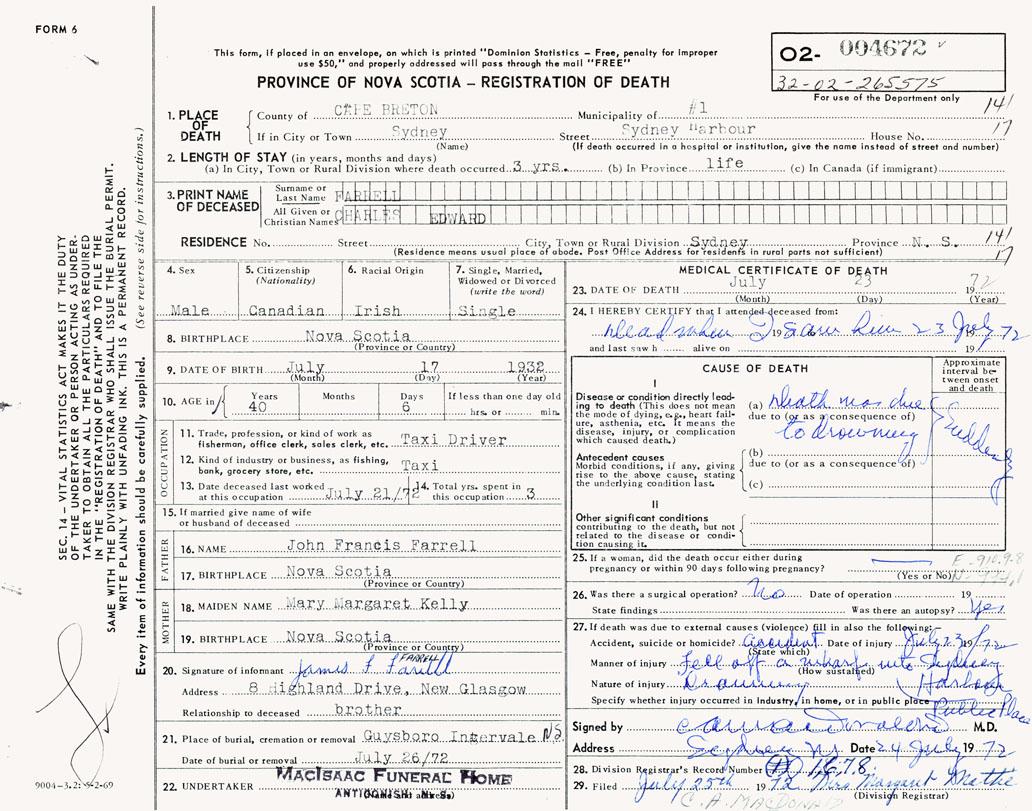 FORM 6
This form, if placed in an envelope, on which is printed "Dominion Statistics – Free, penalty for improper
use $50," and properly addressed will pass through the mail "FREE"
PROVINCE OF NOVA SCOTIA – REGISTRATION OF DEATH
02- 004672
32-02-265575
For use of the Department only
141
17
1. PLACE OF DEATH
County of CAPE BRETON Municipality of #1
If in City or Town Sydney Street Sydney Harbour House No.
(Name) (If death occurred in a hospital or institution, give the name instead of street and number)
2. LENGTH OF STAY (in years, months and days)
(a) In City, Town or Rural Division where death occurred 3 yrs. (b) In Province life (c) In Canada (if immigrant)
3. PRINT NAME OF DECEASED
Surname or Last Name FARRELL
All Given or Christian Names CHARLES EDWARD
RESIDENCE No. Street City, Town or Rural Division Sydney Province N. S. 141
(Residence means usual place of abode. Post Office Address for residents in rural parts not sufficient) 17
4. Sex
Male
5. Citizenship (Nationality)
Canadian
6. Racial Origin
Irish
7. Single, Married, Widowed or Divorced (write the word)
Single
8. BIRTHPLACE Nova Scotia
(Province or Country)
9. DATE OF BIRTH July 17 1932
(Month) (Day) (Year)
10. AGE in Years Months Days If less than one day old
40 6 hrs. or min.
OCCUPATION
11. Trade, profession, or kind of work as fisherman, office clerk, sales clerk, etc. Taxi Driver
12. Kind of industry or business, as fishing, bank, grocery store, etc. Taxi
13. Date deceased last worked at this occupation July 21/72
14. Total yrs. spent in this occupation 3
15. If married give name of wife or husband of deceased
FATHER
16. NAME John Francis Farrell
17. BIRTHPLACE Nova Scotia
(Province or Country)
MOTHER
18. MAIDEN NAME Mary Margaret Kelly
19. BIRTHPLACE Nova Scotia
(Province or Country)
FARRELL
20. Signature of informant James F Farrell
Address 8 Highland Drive, New Glasgow
Relationship to deceased brother
21. Place of burial, cremation or removal Guysboro Intervale NS
Date of burial or removal July 26/72
22. UNDERTAKER MacIsaac Funeral Home
(Name and Address)
ANTIGONISH N. S.
MEDICAL CERTIFICATE OF DEATH
23. DATE OF DEATH July 23 1972
(Month) (Day) (Year)
24. I HEREBY CERTIFY that I attended deceased from:
Dead when I saw him 23 July 1972
and last saw h alive on 19
CAUSE OF DEATH
Approximate interval between onset and death
I
Disease or condition directly leading to death (This does not mean the mode of dying, e.g., heart failure, asthenia, etc. It means the disease, injury, or complication which caused death.)
(a) Death was due
due to (or as a consequence of)
to drowning
Suddenly
Antecedent causes
Morbid conditions, if any, giving rise to the above cause, stating the underlying condition last.
(b)
due to (or as a consequence of)
(c)
II
Other significant conditions
contributing to the death, but not related to the disease or condition causing it.
25. If a woman, did the death occur either during pregnancy or within 90 days following pregnancy?
(Yes or No)
E 910.9-8
26. Was there a surgical operation? No Date of operation 19
State findings Was there an autopsy? Yes
27. If death was due to external causes (violence) fill in also the following:
Accident, suicide or homicide? Accident Date of injury July 23 19/72
(State which)
Manner of injury Fell off a wharf into Sydney
(How sustained) Harbour
Nature of injury Drowning
Specify whether injury occurred in industry, in home, or in public place Public Place
Signed by M.D.
Address Sydney NS Date 24 July 1972
28. Division Registrar's Record Number 1678
29. Filed July 25th 1972 Mrs Margaret Mathie
(Division Registrar)
C. A. MACDONALD
SEC. 14 – VITAL STATISTICS ACT MAKES IT THE DUTY
OF THE UNDERTAKER OR PERSON ACTING AS UNDER-
TAKER TO OBTAIN ALL THE PARTICULARS REQUIRED
IN THE "REGISTRATION OF DEATH" AND TO FILE THE
SAME WITH THE DIVISION REGISTRAR WHO SHALL ISSUE THE BURIAL PERMIT.
WRITE PLAINLY WITH UNFADING INK. THIS IS A PERMANENT RECORD.
Every item of information should be carefully supplied. (See reverse side for instructions.)
9004-3.2: 5-2-69